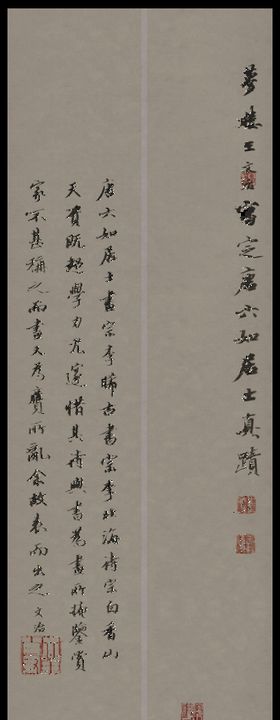 夢樓王文治審定唐六如居士真蹟
唐六如居士畫宗李晞古書宗李北海詩宗白香山
天資既超學力尤邃惜其詩與書為畫所掩鑒賞
家不甚稱之而書又為贋所亂余故表而出之文治